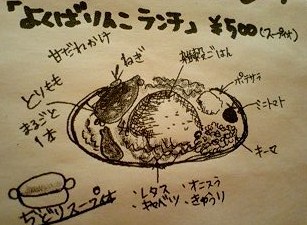 「よくばりんこランチ」 ¥500(スープ付)
甘だれかけ
ねぎ
雑穀ごはん
ポテサラ
ミニトマト
とりもも
まるごと
1本
キーマ
・レタス ・オニスラ
・キャベツ ・きゅうり
ちどりスープ付